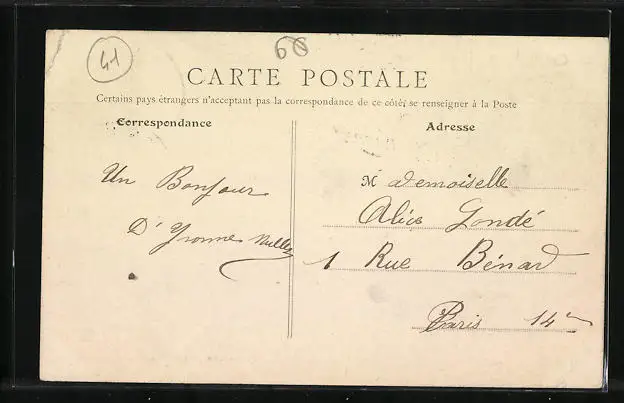 41
60
CARTE POSTALE
Certains pays étrangers n'acceptant pas la correspondance de ce côté, se renseigner à la Poste
Correspondance
Adresse
Un Bonjour
D'Yvonne
Mademoiselle
Alice Gondé
1 Rue Bénard
Paris 14e